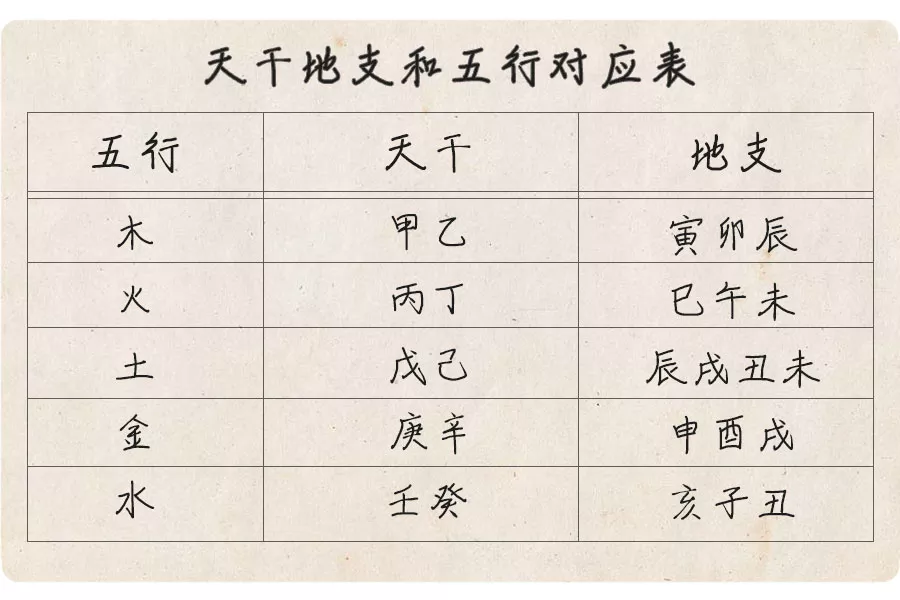 天干地支和五行对应表
五行 天干 地支
木 甲乙 寅卯辰
火 丙丁 巳午未
土 戊己 辰戌丑未
金 庚辛 申酉戌
水 壬癸 亥子丑